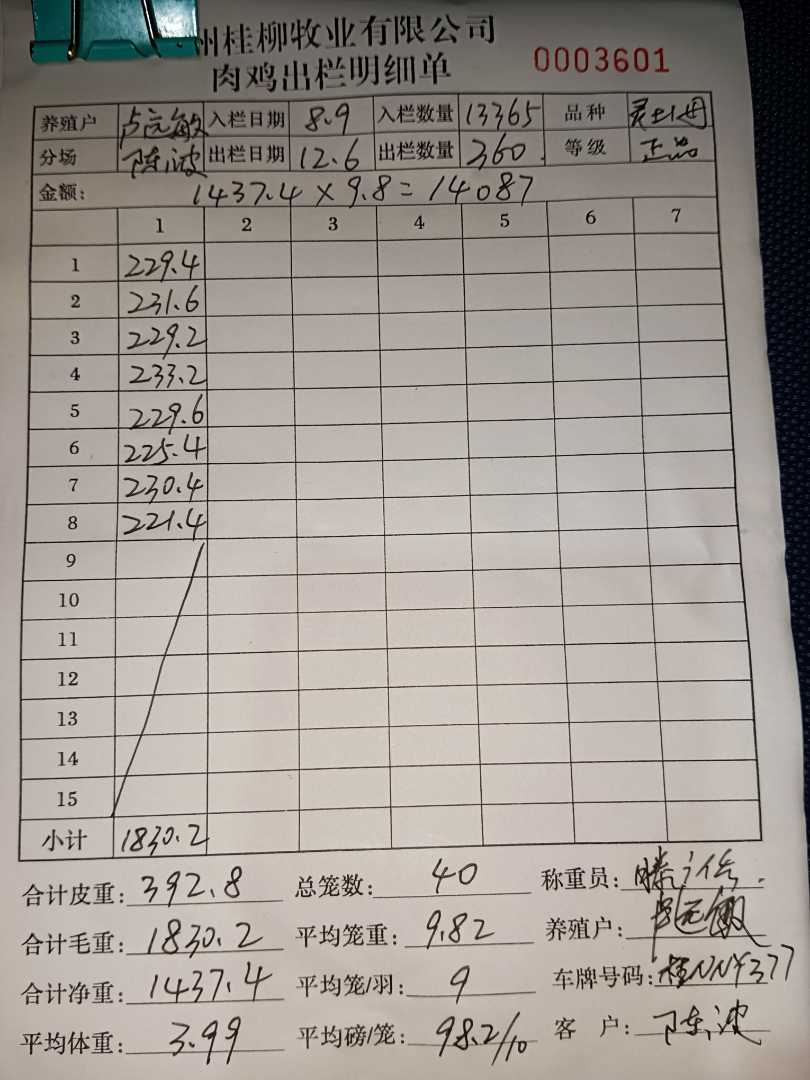 州桂柳牧业有限公司
肉鸡出栏明细单 0003601
养殖户 卢远敏 入栏日期 8.9 入栏数量 13365 品种
分场 陈波 出栏日期 12.6 出栏数量 360. 等级 正品
金额: 1437.4×9.8=14087
1 2 3 4 5 6 7
1 229.4
2 231.6
3 229.2
4 233.2
5 229.6
6 225.4
7 230.4
8 221.4
9
10
11
12
13
14
15
小计 1830.2
合计皮重: 392.8 总笼数: 40 称重员:
合计毛重: 1830.2 平均笼重: 9.82 养殖户: 卢远敏
合计净重: 1437.4 平均笼/羽: 9 车牌号码: 桂NNY377
平均体重: 3.99 平均磅/笼: 98.2/10 客 户: 陈波